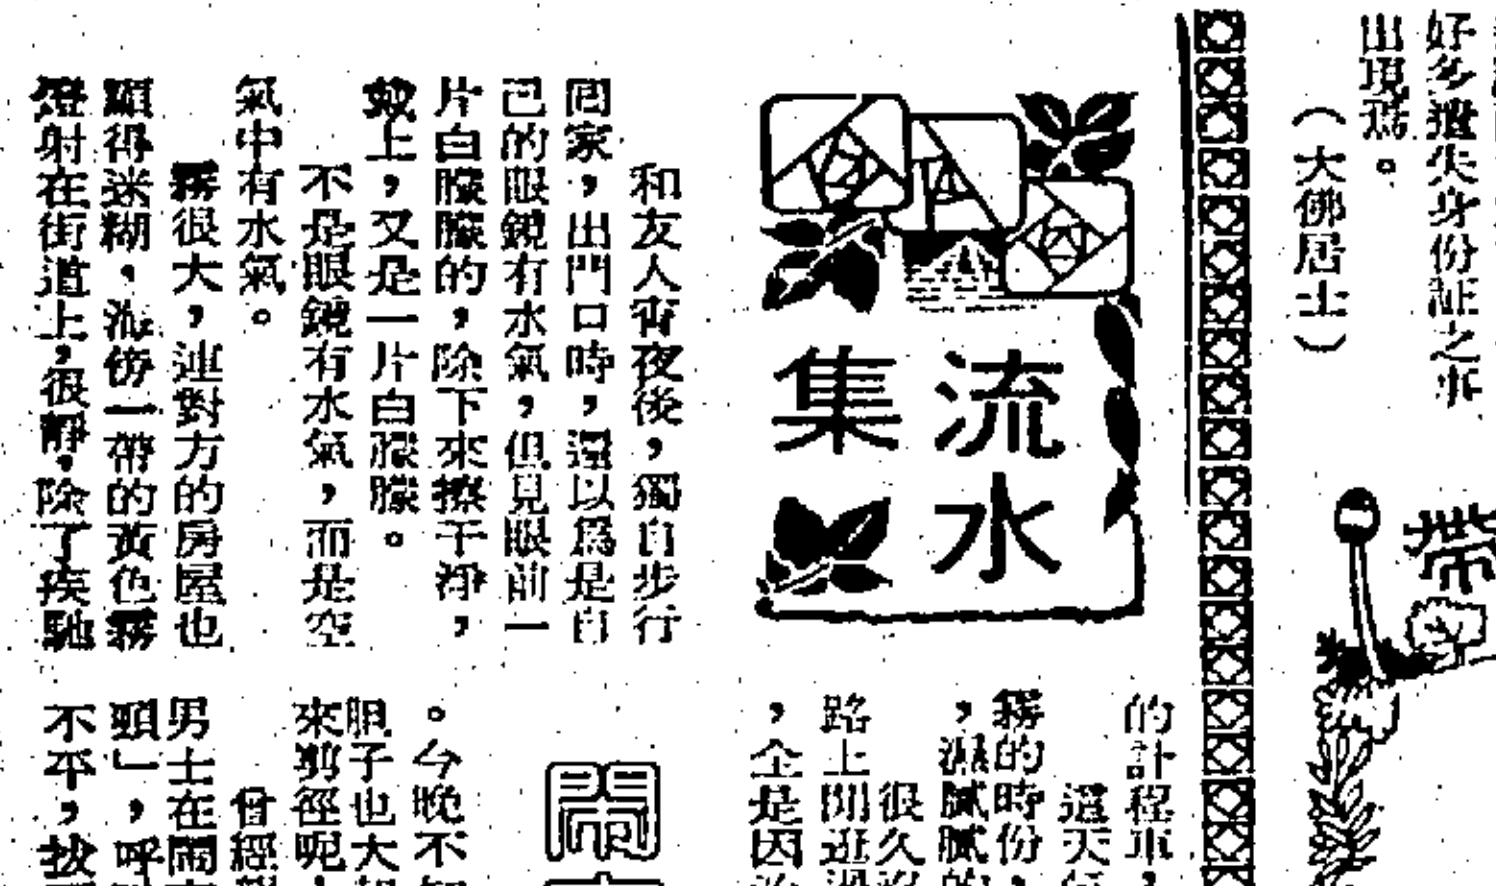 好多遺失身份証之事
出現焉。
（大佛居士）
帶
流水集
和友人宵夜後，獨自步行
回家，出門口時，還以爲是自
己的眼鏡有水氣，但見眼前一
片白朦朦的，除下來擦干淨，
戴上，又是一片白朦朦。
不是眼鏡有水氣，而是空
氣中有水氣。
霧很大，連對方的房屋也
顯得迷糊，海傍一帶的黃色霧
燈射在街道上，很靜，除了疾馳
的計程車，
這天
霧的時份，
，濕膩膩的
很久沒
路上閒逛過
，全是因治
。今晚不知
胆子也大
來剪徑呢，
曾經
男士在鬧
頭」，呼
不平，拔